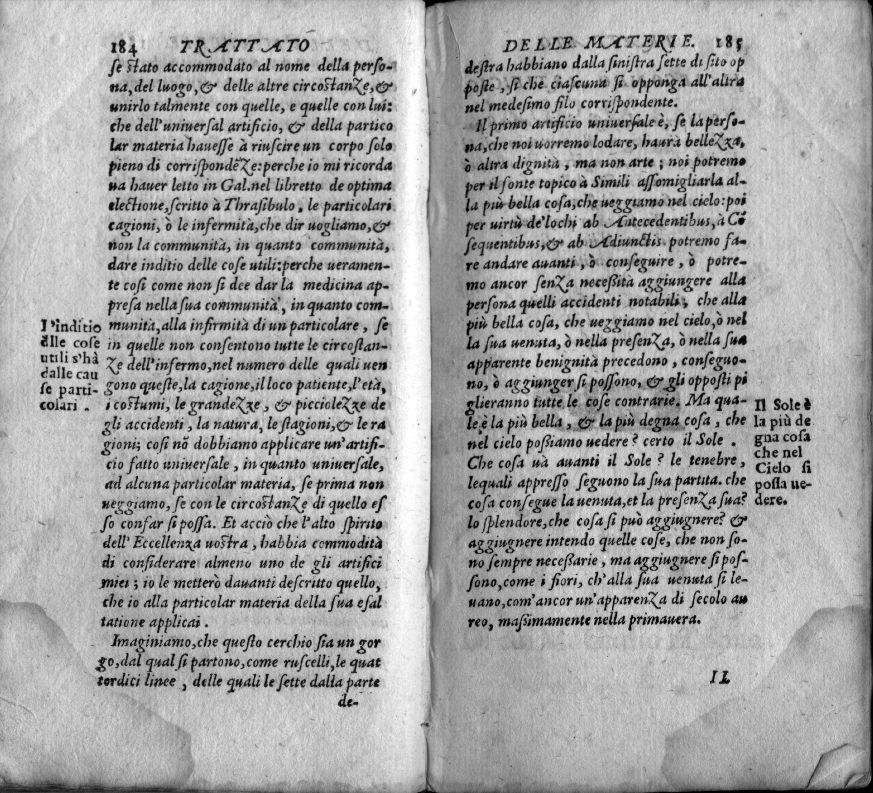 184 TRATTATO
se stato accommodato al nome della perso-
na, del luogo, & delle altre circostanze, &
unirlo talmente con quelle, e quelle con lui:
che dell'universal artificio, & della partico
lar materia havesse à riuscire un corpo solo
pieno di corrispondēze: perche io mi ricorda
va haver letto in Gal. nel libretto de optima
electione, scritto à Thrasibulo, le particolari
cagioni, ò le infermità, che dir vogliamo, &
non la communità, in quanto communità,
dare inditio delle cose utili: perche veramen-
te cosi come non si dee dar la medicina ap-
presa nella sua communità, in quanto com-
munità, alla infirmità di un particolare, se
in quelle non consentono tutte le circostan-
ze dell'infermo, nel numero delle quali ven
gono queste, la cagione, il loco patiente, l'età,
i costumi, le grandezze, & picciolezze de
gli accidenti, la natura, le stagioni, & le ra
gioni; cosi nō dobbiamo applicare un'artifi-
cio fatto universale, in quanto universale,
ad alcuna particolar materia, se prima non
veggiamo, se con le circostanze di quello es
so confar si possa. Et acciò che l'alto spirito
dell'Eccellenza vostra, habbia commodità
di considerare almeno uno de gli artifici
miei; io le metterò davanti descritto quello,
che io alla particolar materia della sua esal
tatione applicai.
Imaginiamo, che questo cerchio sia un gor
go, dal qual si partono, come ruscelli, le quat
tordici linee, delle quali le sette dalla parte
de-
l'inditio
dlle cose
utili s'hà
dalle cau
se parti-
colari.
DELLE MATERIE. 185
destra habbiano dalla sinistra sette di sito op
poste, si che ciascuna si opponga all'altra
nel medesimo filo corrispondente.
Il primo artificio universale è, se la perso-
na, che noi vorremo lodare, haurà bellezza,
ò altra dignità, ma non arte; noi potremo
per il fonte topico à Simili assomigliarla al-
la più bella cosa, che veggiamo nel cielo: poi
per virtù de'lochi ab Antecedentibus, à Cō
sequentibus, & ab Adiunctis potremo fa-
re andare avanti, ò conseguire, ò potre-
mo ancor senza necessità aggiungere alla
persona quelli accidenti notabili, che alla
più bella cosa, che veggiamo nel cielo, ò nel
la sua venuta, ò nella presenza, ò nella sua
apparente benignità precedono, conseguo-
no, ò aggiunger si possono, & gli opposti pi
glieranno tutte le cose contrarie. Ma qua-
le è la più bella, & la più degna cosa, che
nel cielo possiamo vedere? certo il Sole.
Che cosa và avanti il Sole? le tenebre,
lequali appresso seguono la sua partita. che
cosa consegue la venuta, et la presenza sua?
lo splendore, che cosa si può aggiugnere? &
aggiugnere intendo quelle cose, che non so-
no sempre necessarie, ma aggiugnere si pos-
sono, come i fiori, ch'alla sua venuta si le-
vano, com'ancor un'apparenza di secolo au
reo, massimamente nella primavera.
IL
Il Sole è
la più de
gna cosa
che nel
Cielo si
possa ve-
dere.